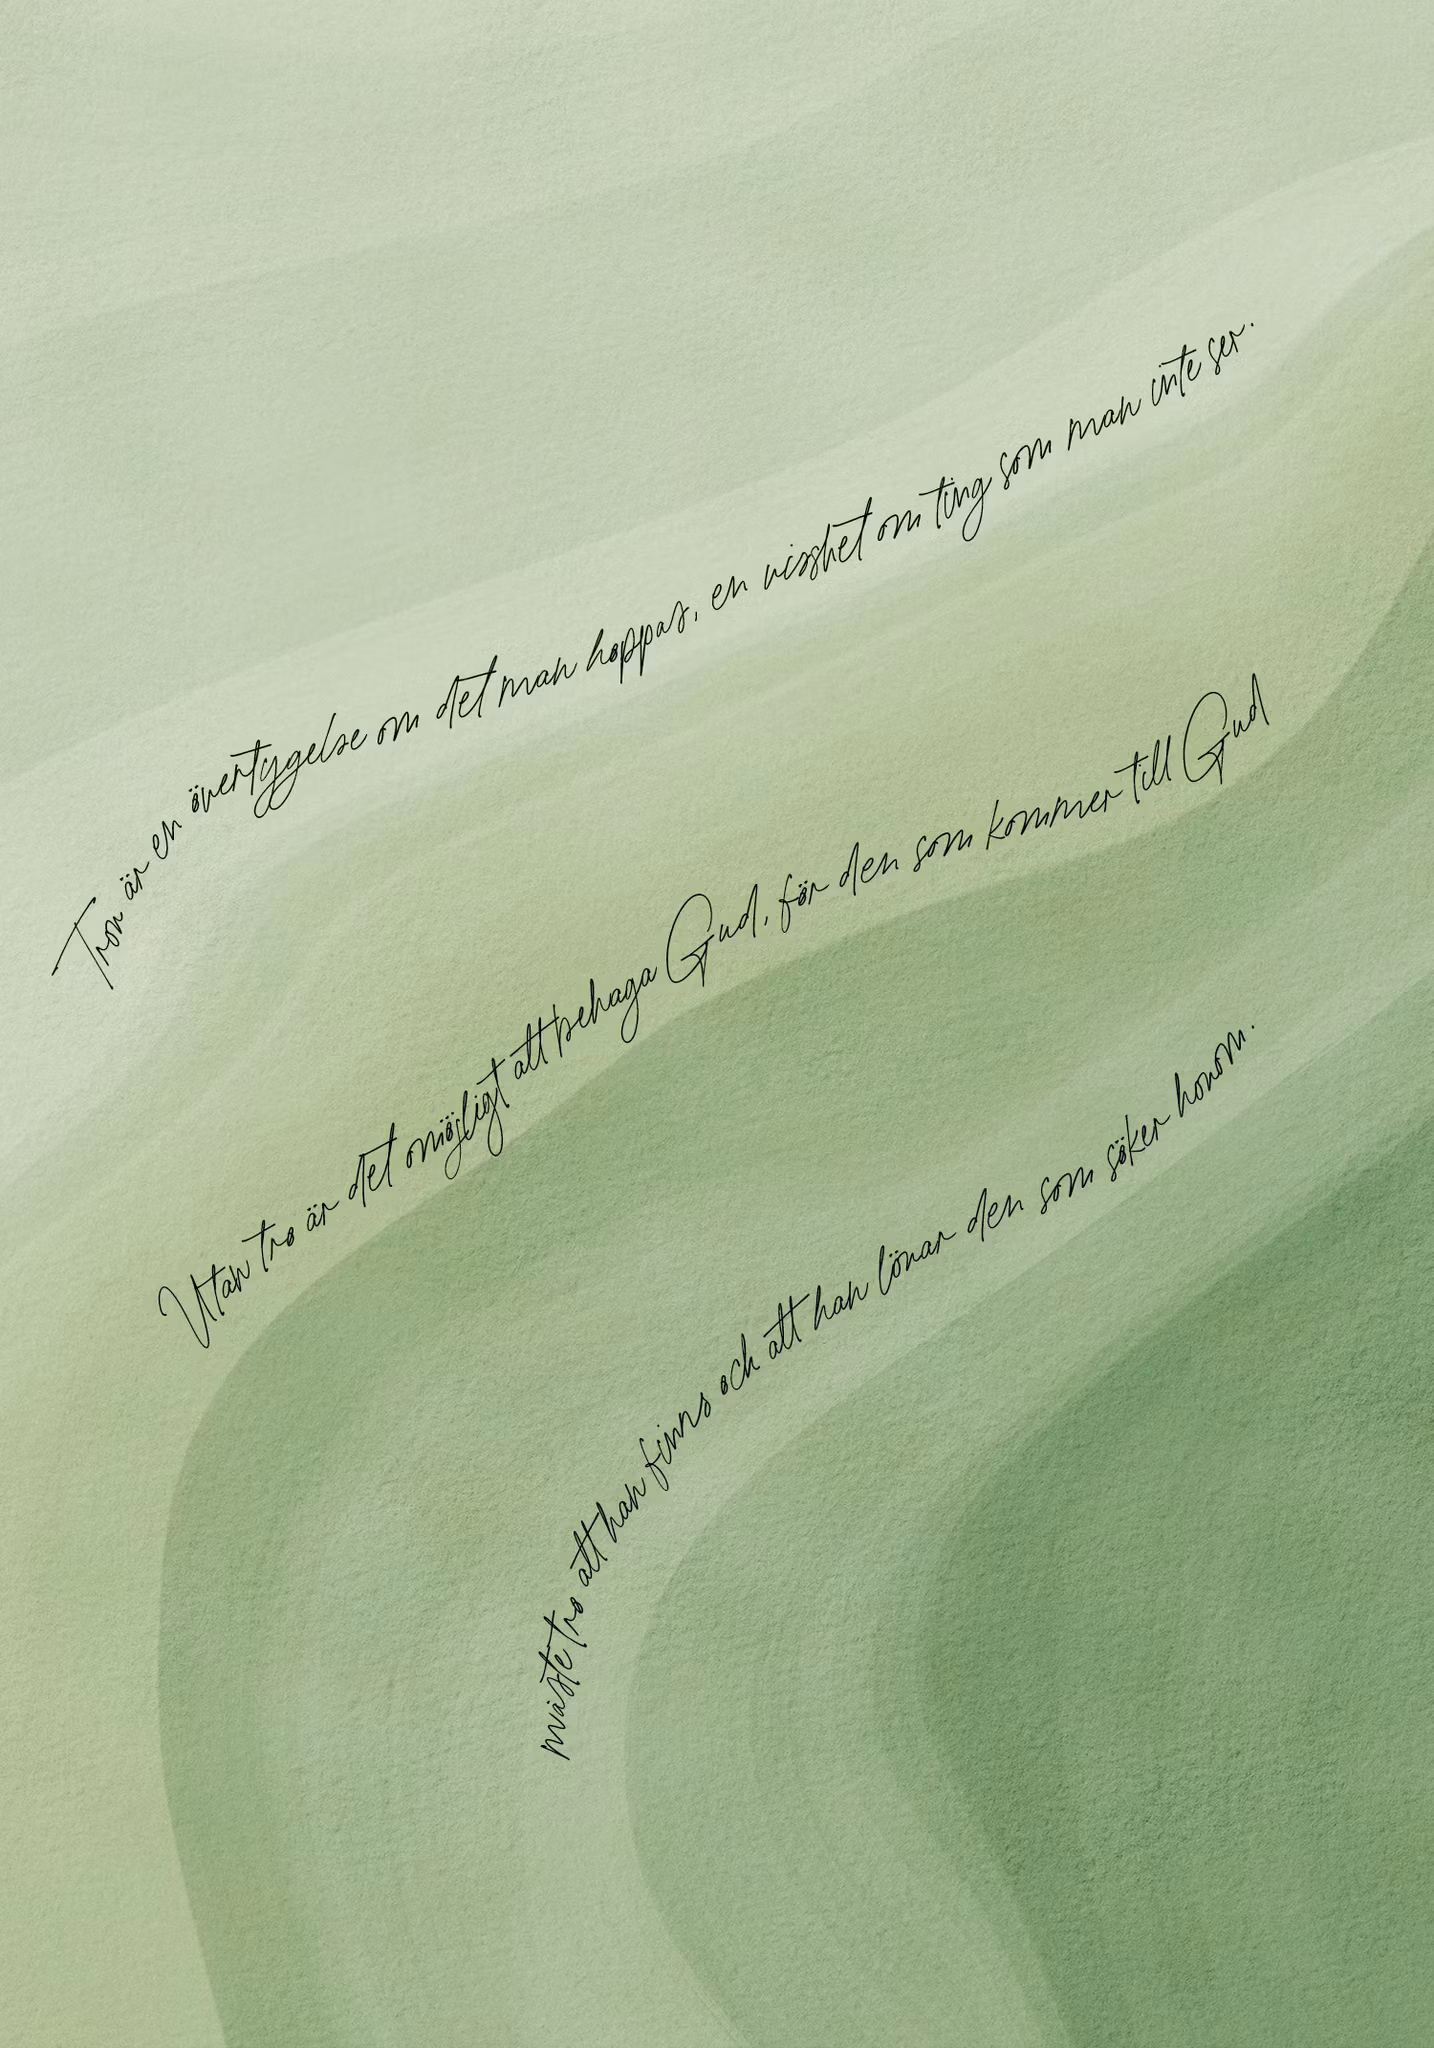 Tron är en övertygelse om det man hoppas, en visshet om ting som man inte ser.
Utan tro är det omöjligt att behaga Gud, för den som kommer till Gud
måste tro att han finns och att han lönar den som söker honom.